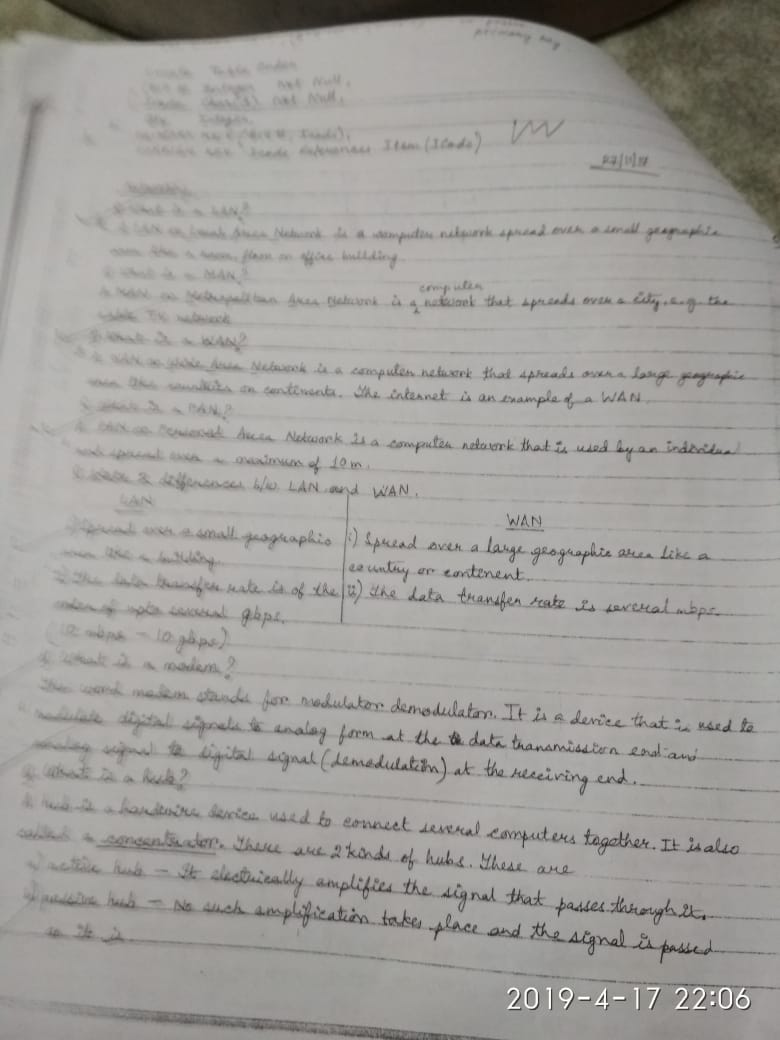 primary key
Create Table Order
not Null,
not Null,
Integer,
Icode references Item (ICode)
27/11/18
Q What is a LAN?
A LAN or Local Area Network is a computer network spread over a small geographic
area like a room, floor or office building.
Q What is a MAN?
computer
A MAN or Metropolitan Area Network is a network that spreads over a city, e.g. the
cable TV network
Q What is a WAN?
A WAN or Wide Area Network is a computer network that spreads over a large geographic
area like countries or continents. The internet is an example of a WAN.
Q What is a PAN?
A PAN or Personal Area Network is a computer network that is used by an individual
and spread over a maximum of 10m.
Q 2 differences b/w LAN and WAN.
LAN
WAN
i) Spread over a small geographic
area like a building.
ii) The data transfer rate is of the
order of upto several gbps.
(10 mbps - 10 gbps)
i) Spread over a large geographic area like a
country or continent.
ii) The data transfer rate is several mbps.
Q What is a modem?
The word modem stands for modulator demodulator. It is a device that is used to
modulate digital signals to analog form at the data transmission end and
analog signal to digital signal (demodulation) at the receiving end.
Q What is a hub?
A hub is a hardware device used to connect several computers together. It is also
called a concentrator. There are 2 kinds of hubs. These are
i) active hub - It electrically amplifies the signal that passes through it.
ii) passive hub - No such amplification takes place and the signal is passed
as it is.
2019-4-17 22:06